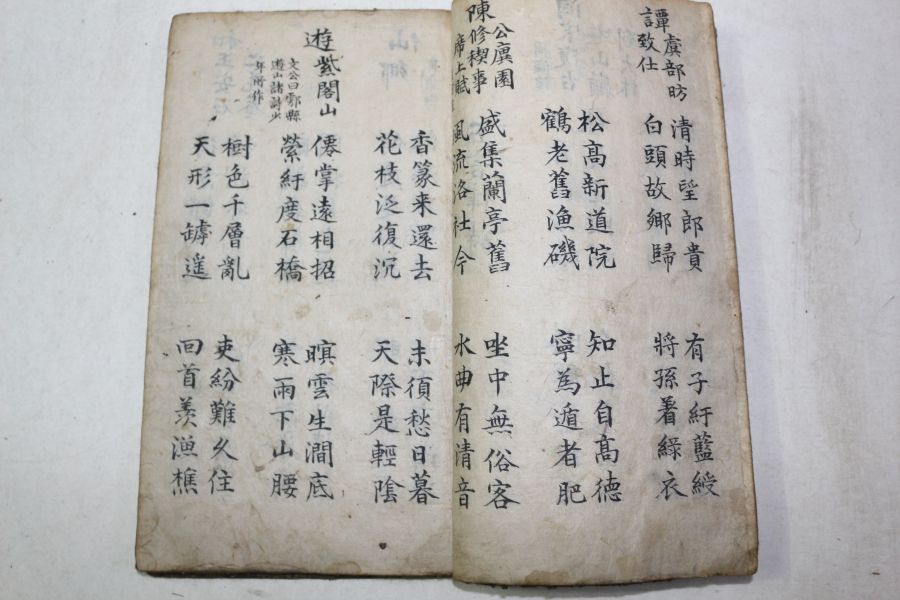 譚虞部昉
致仕
清時望郎貴 有子紆藍綬
白頭故鄉歸 將孫着綠衣
松高新道院 知止自高德
鶴老舊漁磯 寧為遁者肥
陳公廙園
修禊事
席上賦
盛集蘭亭舊 坐中無俗客
風流洛社今 水曲有清音
香篆来還去 未須愁日暮
花枝泛復沉 天際是輕陰
遊紫閣山
文公曰鄠縣
遊山諸詩少
年所作
僊掌遠相招 暝雲生澗底
縈紆度石橋 寒雨下山腰
樹色千層亂 吏紛難久住
天形一罅遙 回首羨漁樵